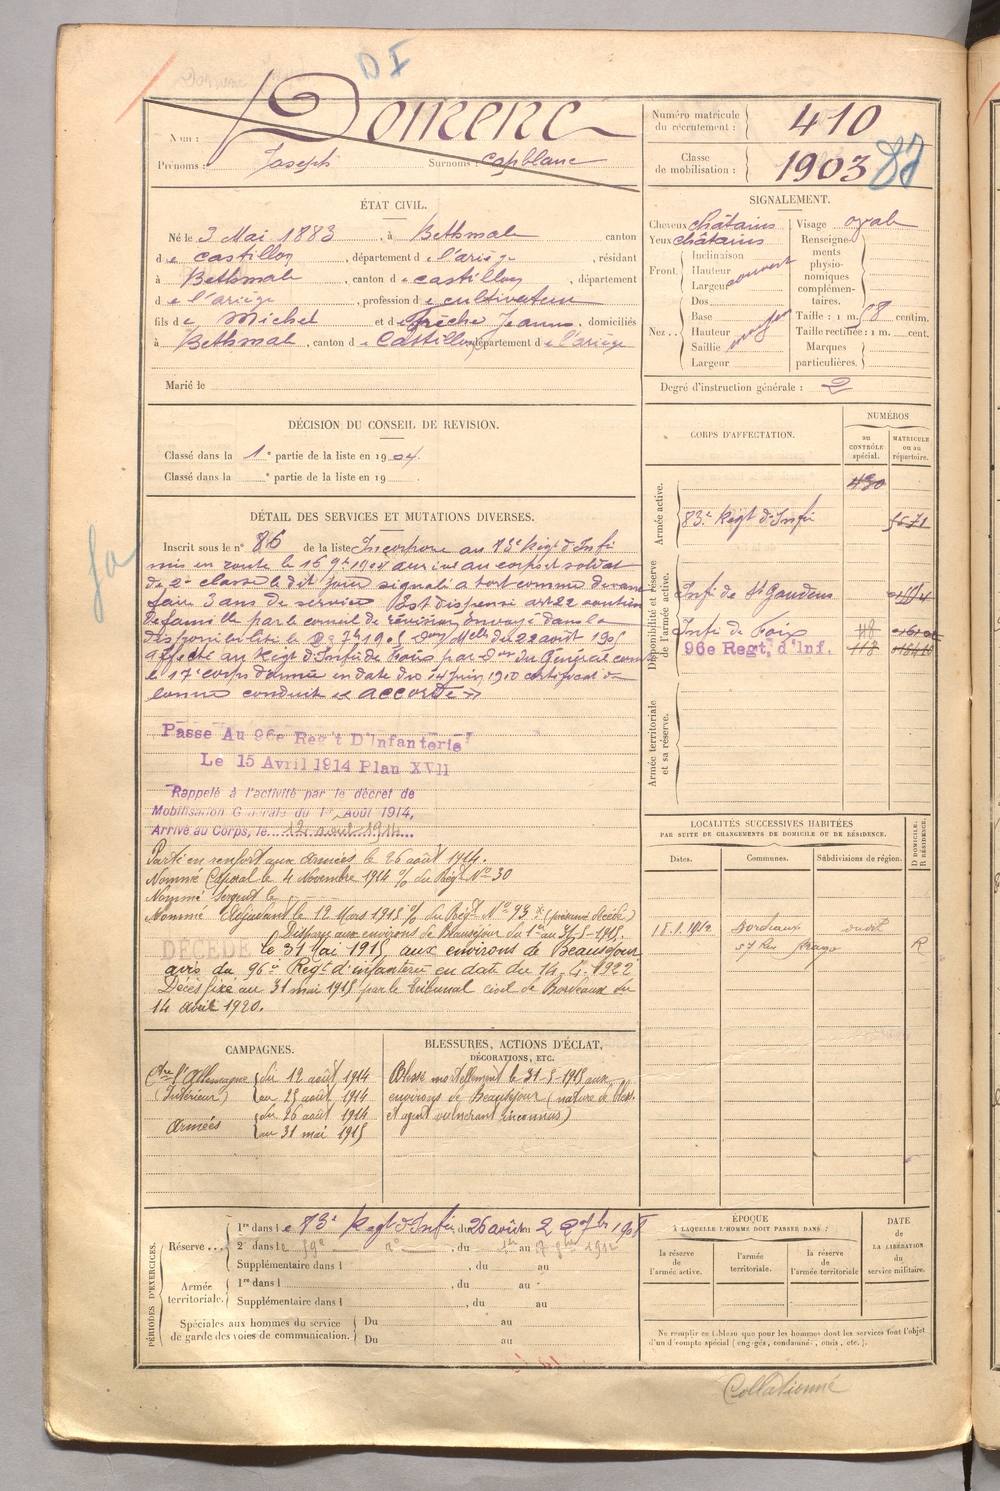 DI
Nom : Domenc
Prénoms : Joseph Surnoms : Capblanc
Numéro matricule du recrutement : 410
Classe de mobilisation : 1903
ÉTAT CIVIL.
Né le 3 Mai 1883, à Bethmale canton
de Castillon, département de l'ariège, résidant
à Bethmale, canton de castillon, département
de l'ariège, profession de cultivateur
fils de Michel et de Frèche Jeanne, domiciliés
à Bethmale, canton de Castillon département de l'ariège
Marié le
SIGNALEMENT.
Cheveux châtains Visage oval
Yeux châtains
Front. Inclinaison Hauteur Largeur couvert
Nez. Dos Base Hauteur Saillie Largeur moyen
Renseignements physionomiques complémentaires.
Taille : 1 m. 58 centim.
Taille rectifiée : 1 m. cent.
Marques particulières.
Degré d'instruction générale : 2
DÉCISION DU CONSEIL DE REVISION.
Classé dans la 1e partie de la liste en 1904.
Classé dans la e partie de la liste en 19
CORPS D'AFFECTATION.
NUMÉROS
au CONTRÔLE spécial.
MATRICULE ou au répertoire.
Armée active.
430
83e Régt d'Infie 5571
Disponibilité et réserve de l'armée active.
Infie de St Gaudens
Infie de Foix 118
96e Regt. d'Inf. 118
Armée territoriale et sa réserve.
DÉTAIL DES SERVICES ET MUTATIONS DIVERSES.
Inscrit sous le n° 86 de la liste Incorporé au 83e Régt d'Infie
mis en route le 16 9bre 1904 arrivé au corps et soldat
de 2e classe le dit jour signalé à tort comme devant
faire 3 ans de service Est dispensé art 22 soutien
de famille par le conseil de révision envoyé dans la
disponibilité le 7bre 1905 du 22 août 1905
affecté au Régt d'Infie de Foix par du Général comt
le 17e corps d'armée en date du 14 juin 1910 certificat de
bonne conduite « accordé »
Passe Au 96e Reg't D'Infanterie
Le 15 Avril 1914 Plan XVII
Rappelé à l'activité par le décret de
Mobilisation Générale du 1er Août 1914,
Arrivé au Corps, le 12 août 1914
Parti en renfort aux armées le 26 août 1914.
Nommé Caporal le 4 Novembre 1914 o/ du Régt No 30
Nommé Sergent le
Nommé Adjudant le 12 Mars 1915 o/ du Régt No 93 (présumé décédé)
Disparu aux environs de Beauséjour du 1er au 31-5-1915.
DÉCÉDÉ le 31 Mai 1915 aux environs de Beauséjour
avis du 96e Régt d'infanterie en date du 14.4.1922
Décès fixé au 31 mai 1915 par le tribunal civil de Bordeaux du
14 avril 1920.
LOCALITÉS SUCCESSIVES HABITÉES
PAR SUITE DE CHANGEMENTS DE DOMICILE OU DE RÉSIDENCE.
Dates. Communes. Subdivisions de région. D DOMICILE. R RÉSIDENCE.
1912 Bordeaux
57 Rue Arago R
CAMPAGNES.
Ctre l'Allemagne du 12 août 1914
(Intérieur) au 25 août 1914
Armées du 26 août 1914
au 31 mai 1915
BLESSURES, ACTIONS D'ÉCLAT,
DÉCORATIONS, ETC.
Blessé mortellement le 31-5-1915 aux
environs de Beauséjour (nature de bless.
et agent vulnérant inconnus)
PÉRIODES D'EXERCICES.
Réserve... 1re dans le 83e Régt d'Infie du 26 août au 22 7bre 1908
2e dans le 59e, du au 1912
Supplémentaire dans l, du au
Armée territoriale. 1re dans l, du au
Supplémentaire dans l, du au
Spéciales aux hommes du service de garde des voies de communication. Du au
Du au
ÉPOQUE
À LAQUELLE L'HOMME DOIT PASSER DANS :
la réserve de l'armée active.
l'armée territoriale.
la réserve de l'armée territoriale
DATE de LA LIBÉRATION du service militaire.
Ne remplir ce tableau que pour les hommes dont les services font l'objet
d'un décompte spécial (engagés, condamnés, omis, etc.).
Collationné